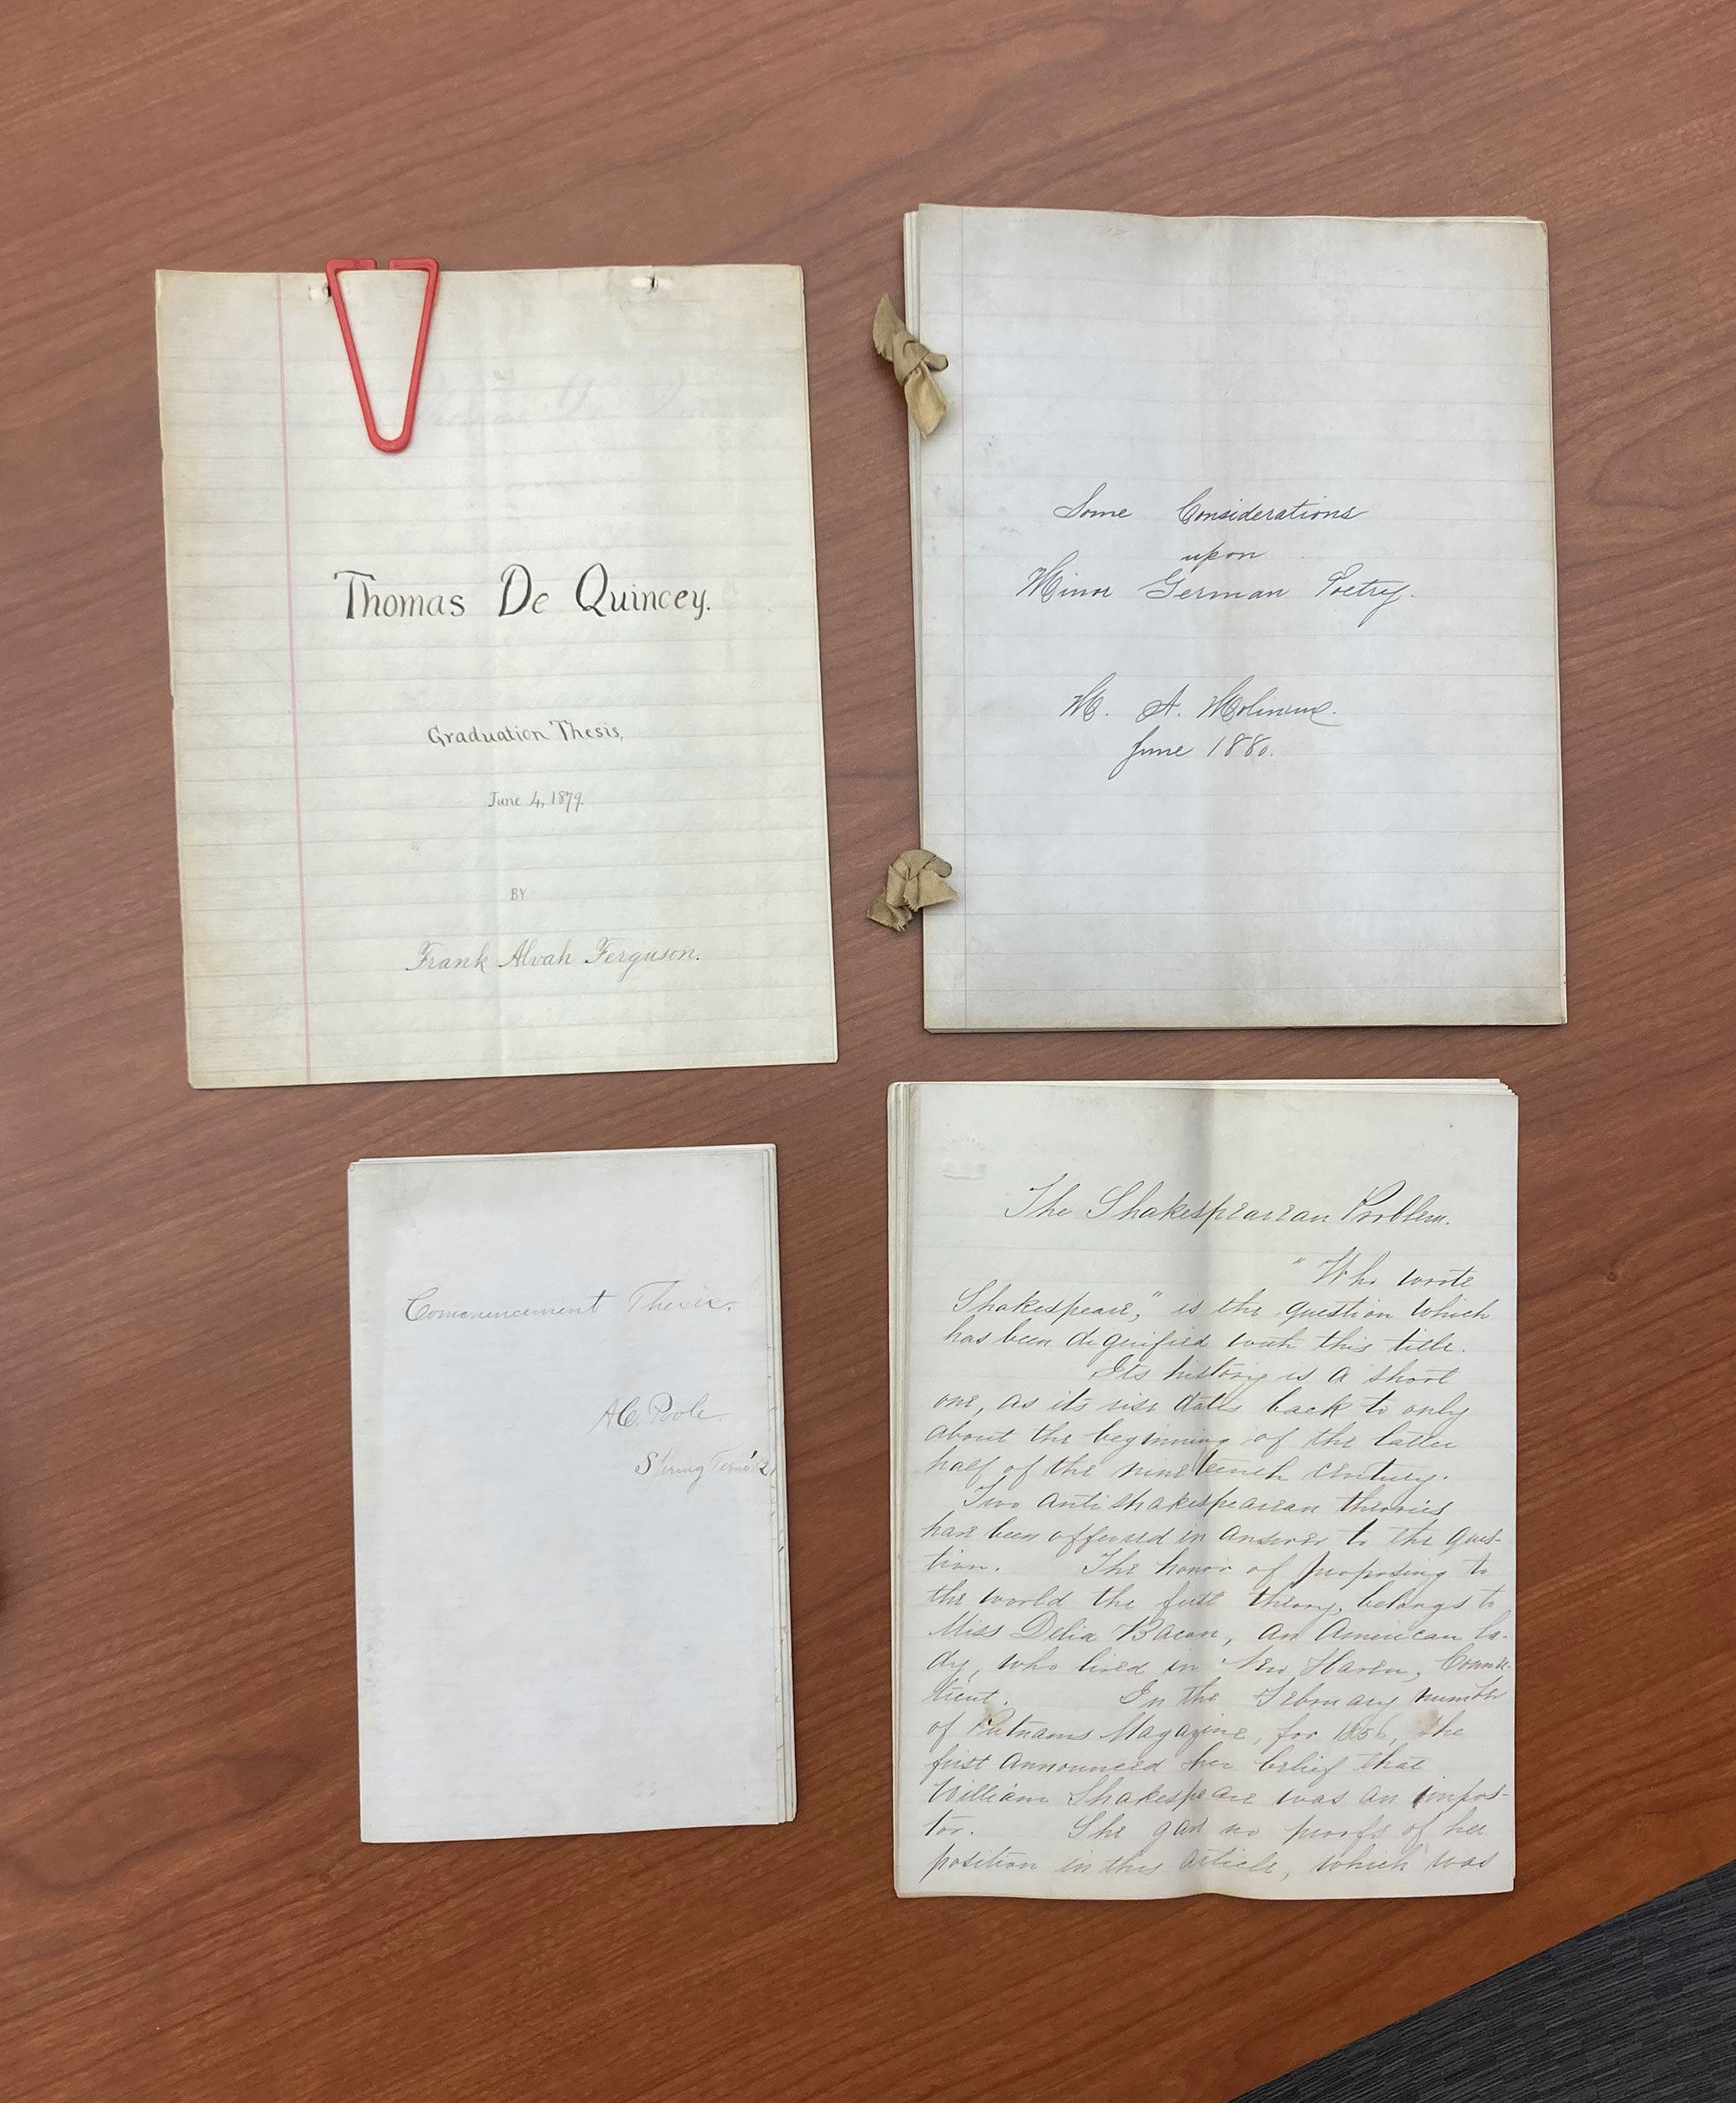 Thomas De Quincey.
Graduation Thesis,
June 4, 1879.
BY
Frank Alvah Ferguson.
Some Considerations
upon
Minor German Poetry.
M. A. Molineux.
June 1880.
Commencement Thesis.
A.C. Poole.
Spring Term '82
The Shakespearean Problem.
"Who wrote
Shakespeare," is the question which
has been dignified with this title.
Its history is a short
one, as its rise dates back to only
about the beginning of the latter
half of the nineteenth century.
Two antishakespearean theories
have been offered in answer to the ques-
tion. The honor of proposing to
the world the first theory, belongs to
Miss Delia Bacon, an American la-
dy, who lived in New Haven, Connec-
ticut. In the February number
of Putnams Magazine, for 1856, she
first announced her belief that
William Shakespeare was an impos-
tor. She gave no proofs of her
position in this article, which was